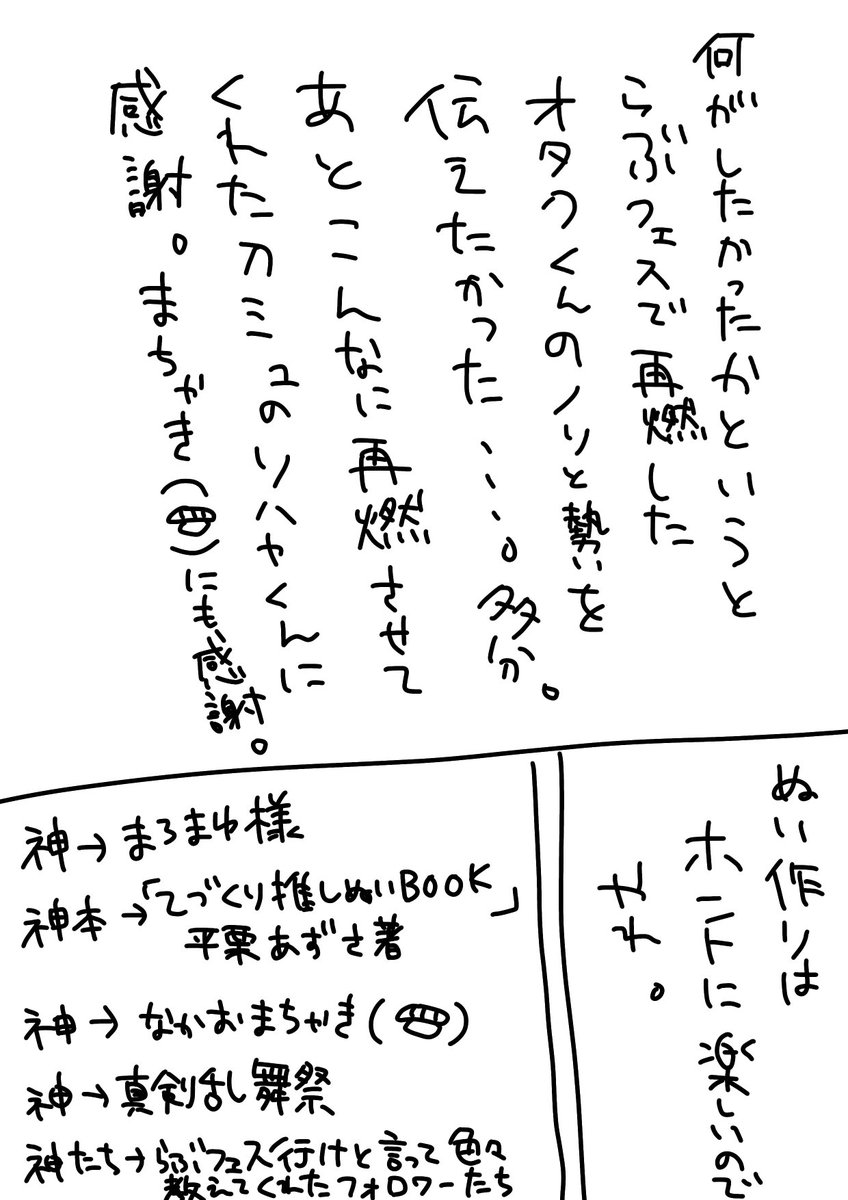 何がしたかったかというと
らぶフェスで再燃した
オタクくんのノリと勢いを
伝えたかった…。多分。
あとこんなに再燃させて
くれたカミュのソハヤくんに
感謝。まちゃき(
)にも感謝。
ぬい作りは
ホントに楽しいので
やれ。
神→まろまゆ様
神本→「てづくり推しぬいBOOK」
平栗あずさ著
神→なかおまちゃき(
)
神→真剣乱舞祭
神たち→らぶフェス行けと言って色々
教えてくれたフォロワーたち